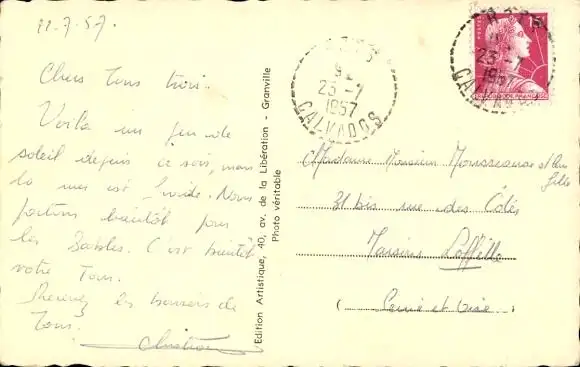 22-7-57.
Chers Tous trois.
Voilà un peu de
soleil depuis ce soir, mais
la mer est froide. Nous
partons bientôt pour
les Sables. C'est bientôt
votre Tour.
Recevez les baisers de
Tous.
Christian
Edition Artistique, 40, av. de la Libération - Granville
Photo véritable
9
23-7
1957
CALVADOS
POSTES
15F
23-7
1957
CALVADOS
Madame Monsieur et leur
fille
31 bis rue des Côtés
Maisons Laffitte
(Seine et Oise)